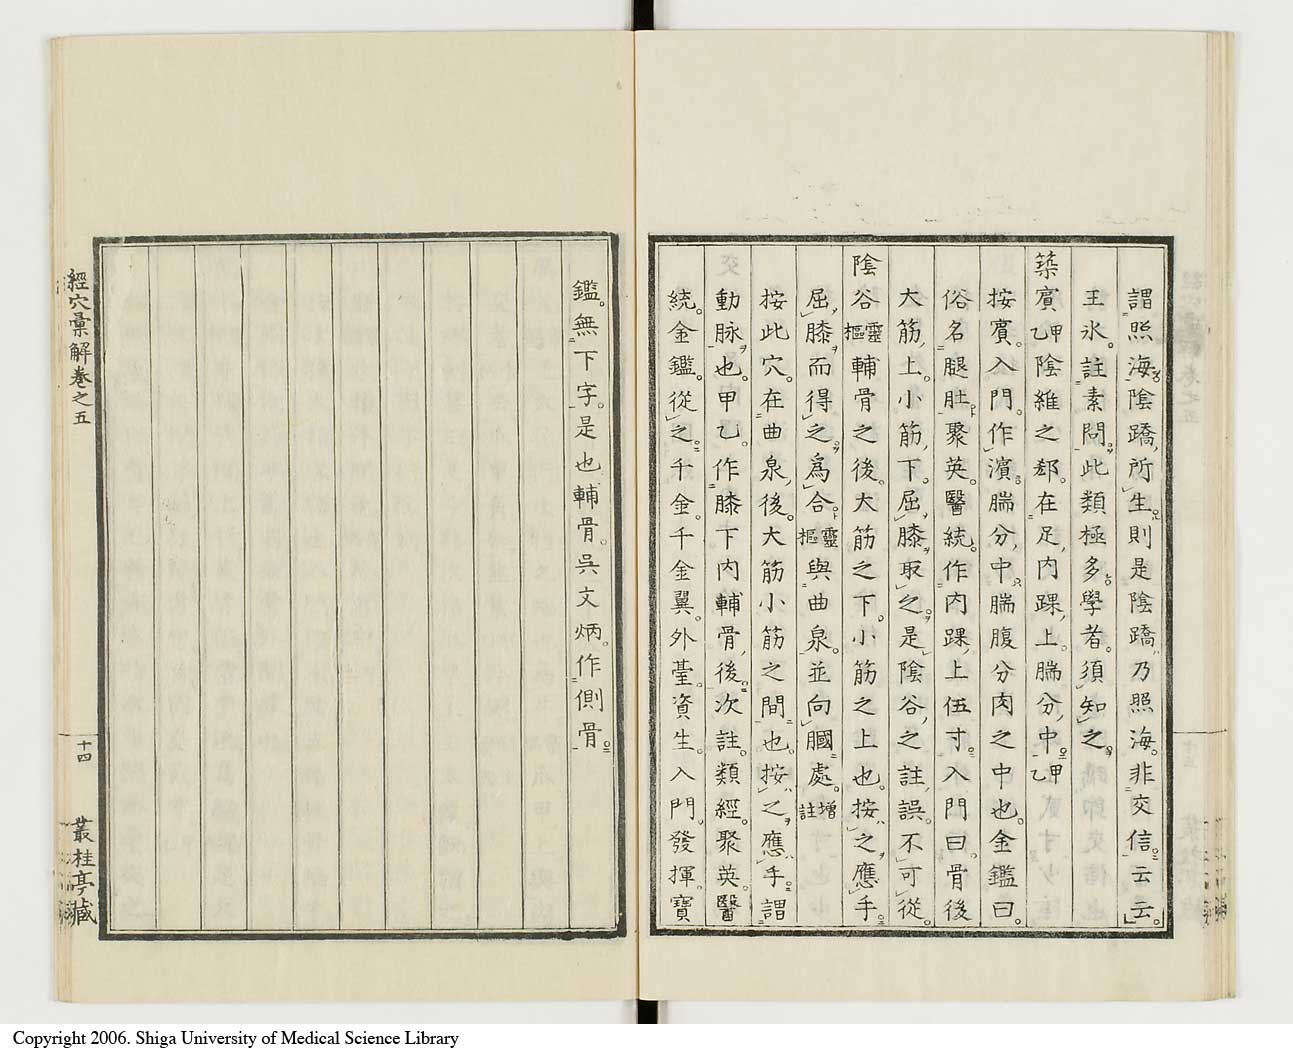 謂照海。陰蹻。所生。則是陰蹻。乃照海。非交信。云云。
王氷。註素問。此類極多。學者。須知之。
築賓甲乙陰維之郄。在足。內踝。上。腨分。中。甲乙
按賓。入門。作濱。腨分。中腨腹分肉之中也。金鑑曰。
俗名腿肚。聚英。醫統。作內踝。上伍寸。入門曰。骨後
大筋。上。小筋。下。屈膝。取之。是陰谷。之註。誤。不可從。
陰谷靈樞輔骨之後。大筋之下。小筋之上也。按之應手。
屈膝而得之。爲合。靈樞與曲泉。並向膕處。增註
按此穴。在曲泉。後。大筋小筋之間也。按之應手。謂
動脉也。甲乙。作膝下內輔骨。後。次註。類經。聚英。醫
統。金鑑。從之。千金。千金翼。外臺。資生。入門。發揮。寶
鑑。無下字。是也輔骨。吳文炳。作側骨。
經穴彙解卷之五
十四
叢桂亭藏
Copyright 2006. Shiga University of Medical Science Library